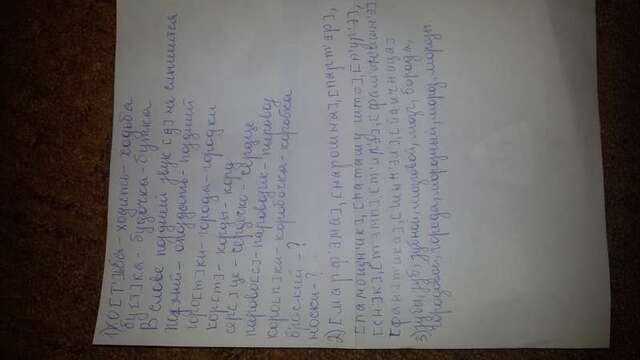 1) ХО[Т']ьба - ходить - ходьба
бу[т]ка - будочка - будка
В слове поздний звук [д] не слышится
По зний - опоздать - поздний
горо[т]ки - города - городки
кор[т] - корды - корд
сер[]це - сердечко - сердце
паровос[с] - паровозик - паровоз
коро[п]ка - коробочка - коробка
броский - ?
носки - ?
2) [марф'эма], [нарошна], [парт'эр],
[памощн'ик], [патаму што], [п'ур'э],
[снэк], [тэмп], [т'ирэ], [фам'ил'ийн'э]
[фанэтика], [шын'эл], [йаичница]
3) зубы, зуб, зубной, мозговой, мозг, борода,
городовой, города, морозный, мороз, морозы